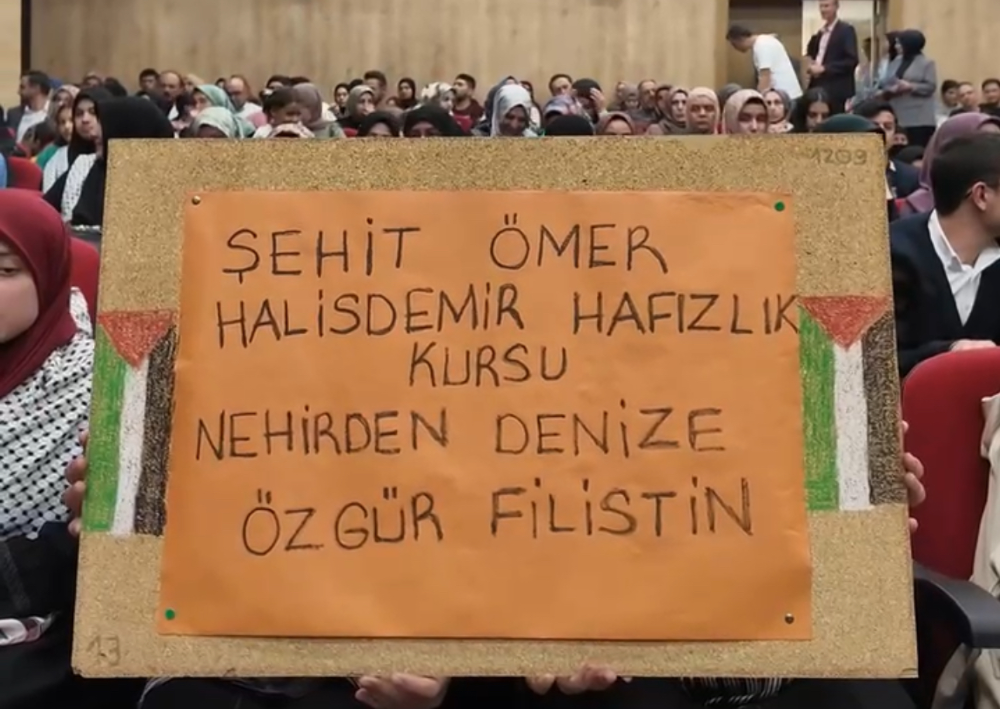 1209
ŞEHİT ÖMER
HALİSDEMİR HAFIZLIK
KURSU
NEHİRDEN DENİZE
ÖZGÜR FİLİSTİN
13